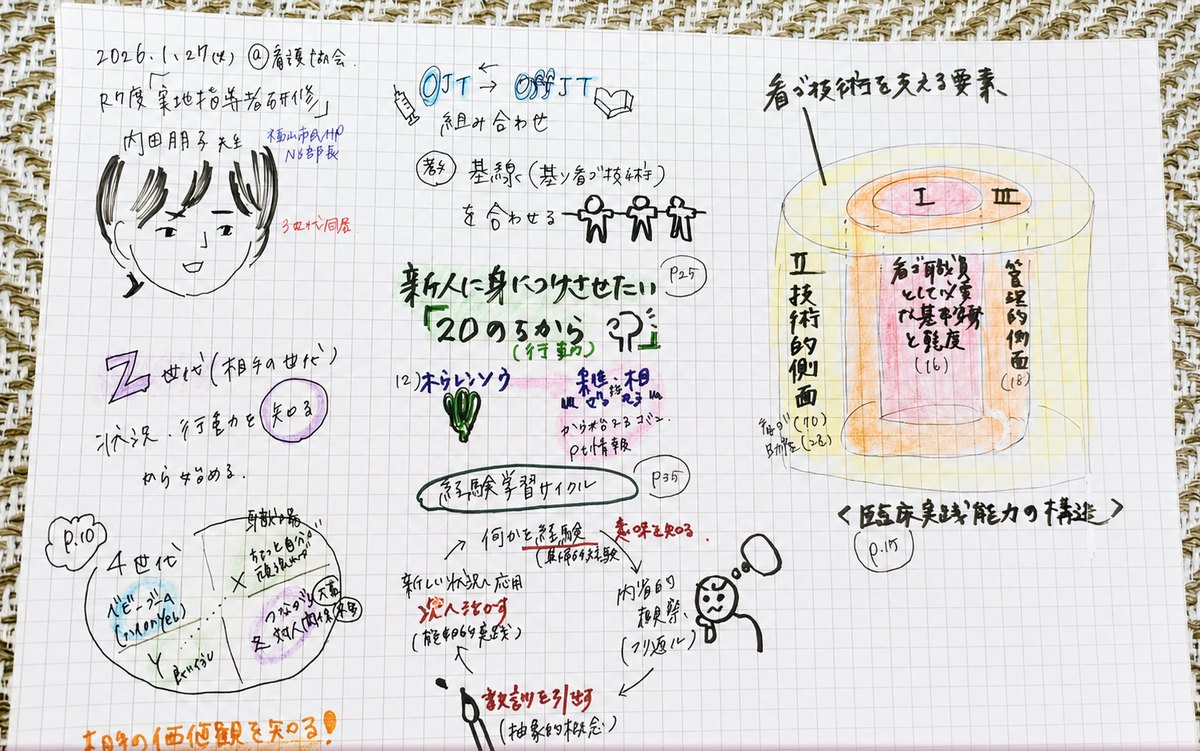 2026.1.27(火) @看護協会.
R7度「実地指導者研修」
内田朋子先生
福山市民HP
NS部長
3世代同居
Z世代(相手の世代)
状況、行動力を知る
から始める.
P.10
4世代
ベビーブーム
X
ちょっと自分
Y
Z
つながり
対人関係
相手の価値観を知る!
OJT → OffJT
組み合わせ
基線(基ソ看ゴ技術)
を合わせる
新人に身につけさせたい
P25
「20のちから」
(行動)
12)ホウレンソウ
Pt情報
経験学習サイクル
P35
何かを経験
意味を知る.
内省的
観察、
(フリ返ル)
教訓を引出す
(抽象的概念)
新しい状況へ応用
次へ活かす
(能動的実践)
看ゴ技術を支える要素
I
III
II
技術的側面
看ゴ(70)
助産(26)
看ゴ職員
として必要
な基本姿勢
と態度
(16)
管理的側面
(18)
<臨床実践能力の構造>
P.15